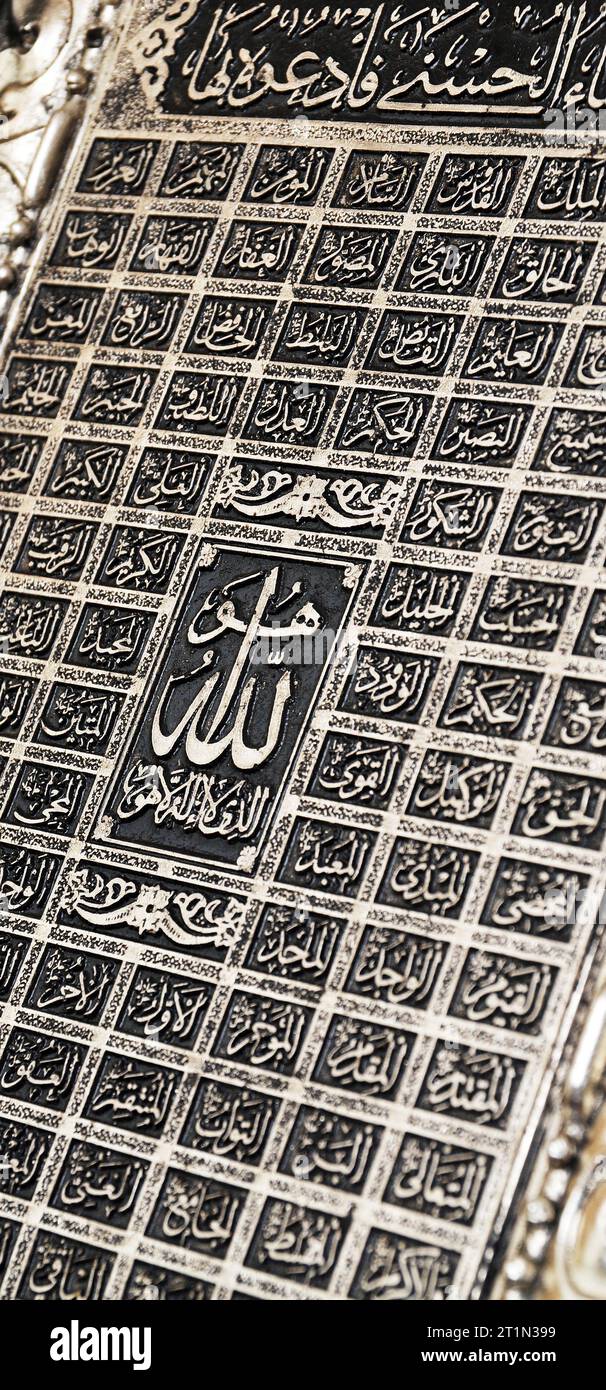 الحسنى فادعوه بها
الملك القدوس السلام المؤمن المهيمن العزيز
الخالق البارئ المصور الغفار القهار الوهاب
العليم القابض الباسط الخافض الرافع المعز
السميع البصير الحكم العدل اللطيف الخبير الحليم
الغفور الشكور العلي الكبير
الحسيب الجليل الكريم الرقيب
الحكيم الودود المجيد الباعث
هو
الله
الذي لا إله إلا هو
الحق الوكيل القوي المتين
المحصي المبدئ المعيد المحيي
القيوم الواجد الماجد الواحد
المقتدر المؤخر الاول الاخر
المتعالي البر التواب المنتقم العفو
المقسط الجامع الغني
الباقي
alamy
Image ID: 2T1N399
www.alamy.com